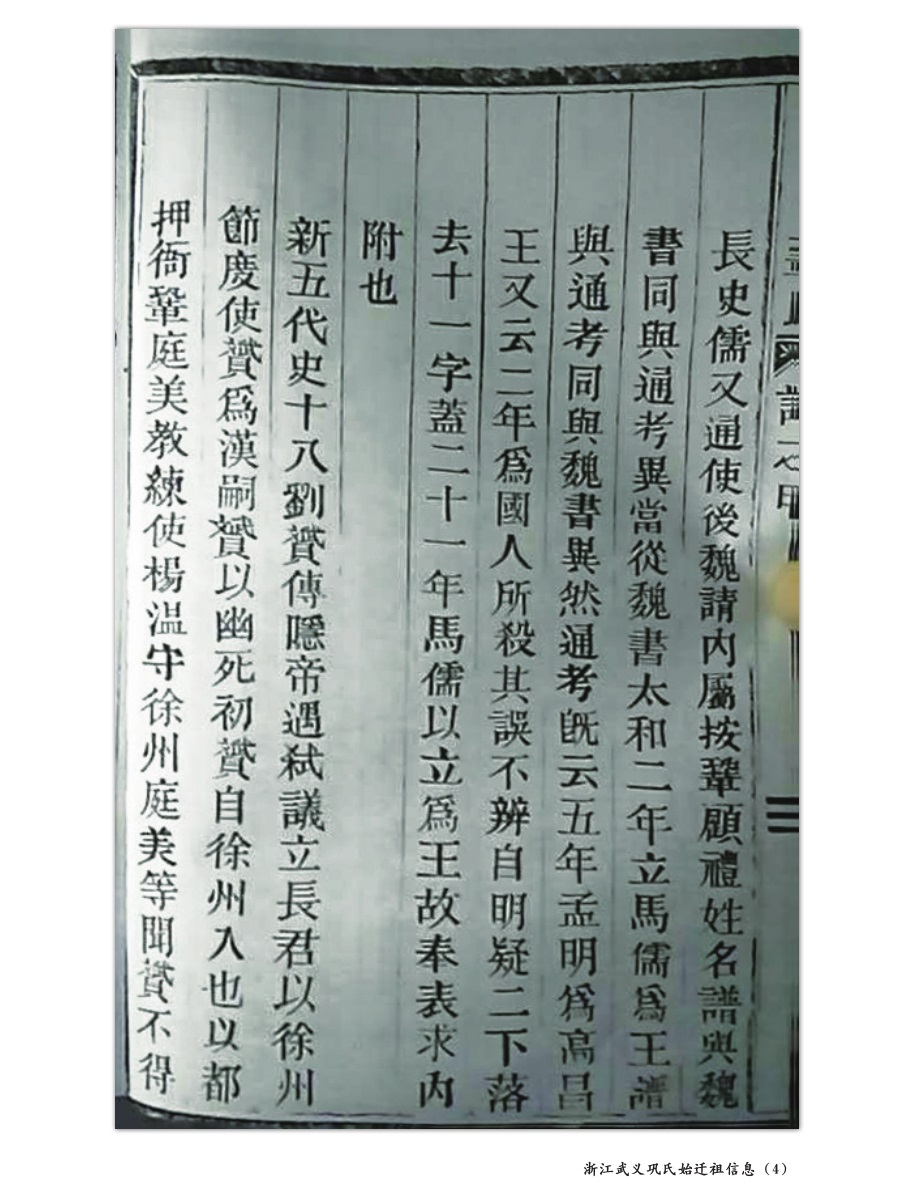 長史儒又通使後魏請內屬按鞏顧禮姓名譜與魏
書同與通考異當從魏書太和二年立馬儒爲王譜
與通考同與魏書異然通考旣云五年孟明爲高昌
王又云二年爲國人所殺其誤不辨自明疑二下落
去十一字蓋二十一年馬儒以立爲王故奉表求內
附也
新五代史十八劉贇傳隱帝遇弑議立長君以徐州
節度使贇爲漢嗣贇以幽死初贇自徐州入也以都
押衙鞏庭美教練使楊温守徐州庭美等聞贇不得
浙江武义巩氏始迁祖信息（4）